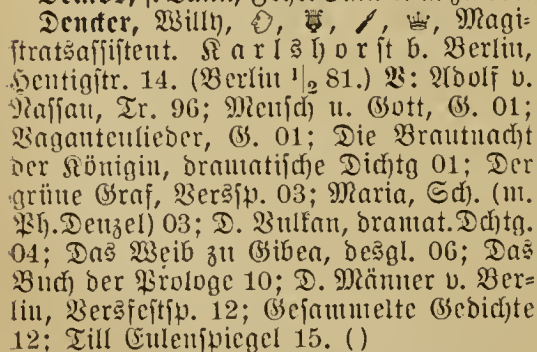 Dencker, Willy, Magi-
stratsassistent. Karlshorst b. Berlin,
Hentigstr. 14. (Berlin 1/2 81.) V: Adolf v.
Nassau, Tr. 96; Mensch u. Gott, G. 01;
Vagantenlieder, G. 01; Die Brautnacht
der Königin, dramatische Dichtg 01; Der
grüne Graf, Verssp. 03; Maria, Sch. (m.
Ph. Denzel) 03; D. Vulkan, dramat. Dchtg.
04; Das Weib zu Gibea, desgl. 06; Das
Buch der Prologe 10; D. Männer v. Ber-
lin, Versfestsp. 12; Gesammelte Gedichte
12; Till Eulenspiegel 15. ()